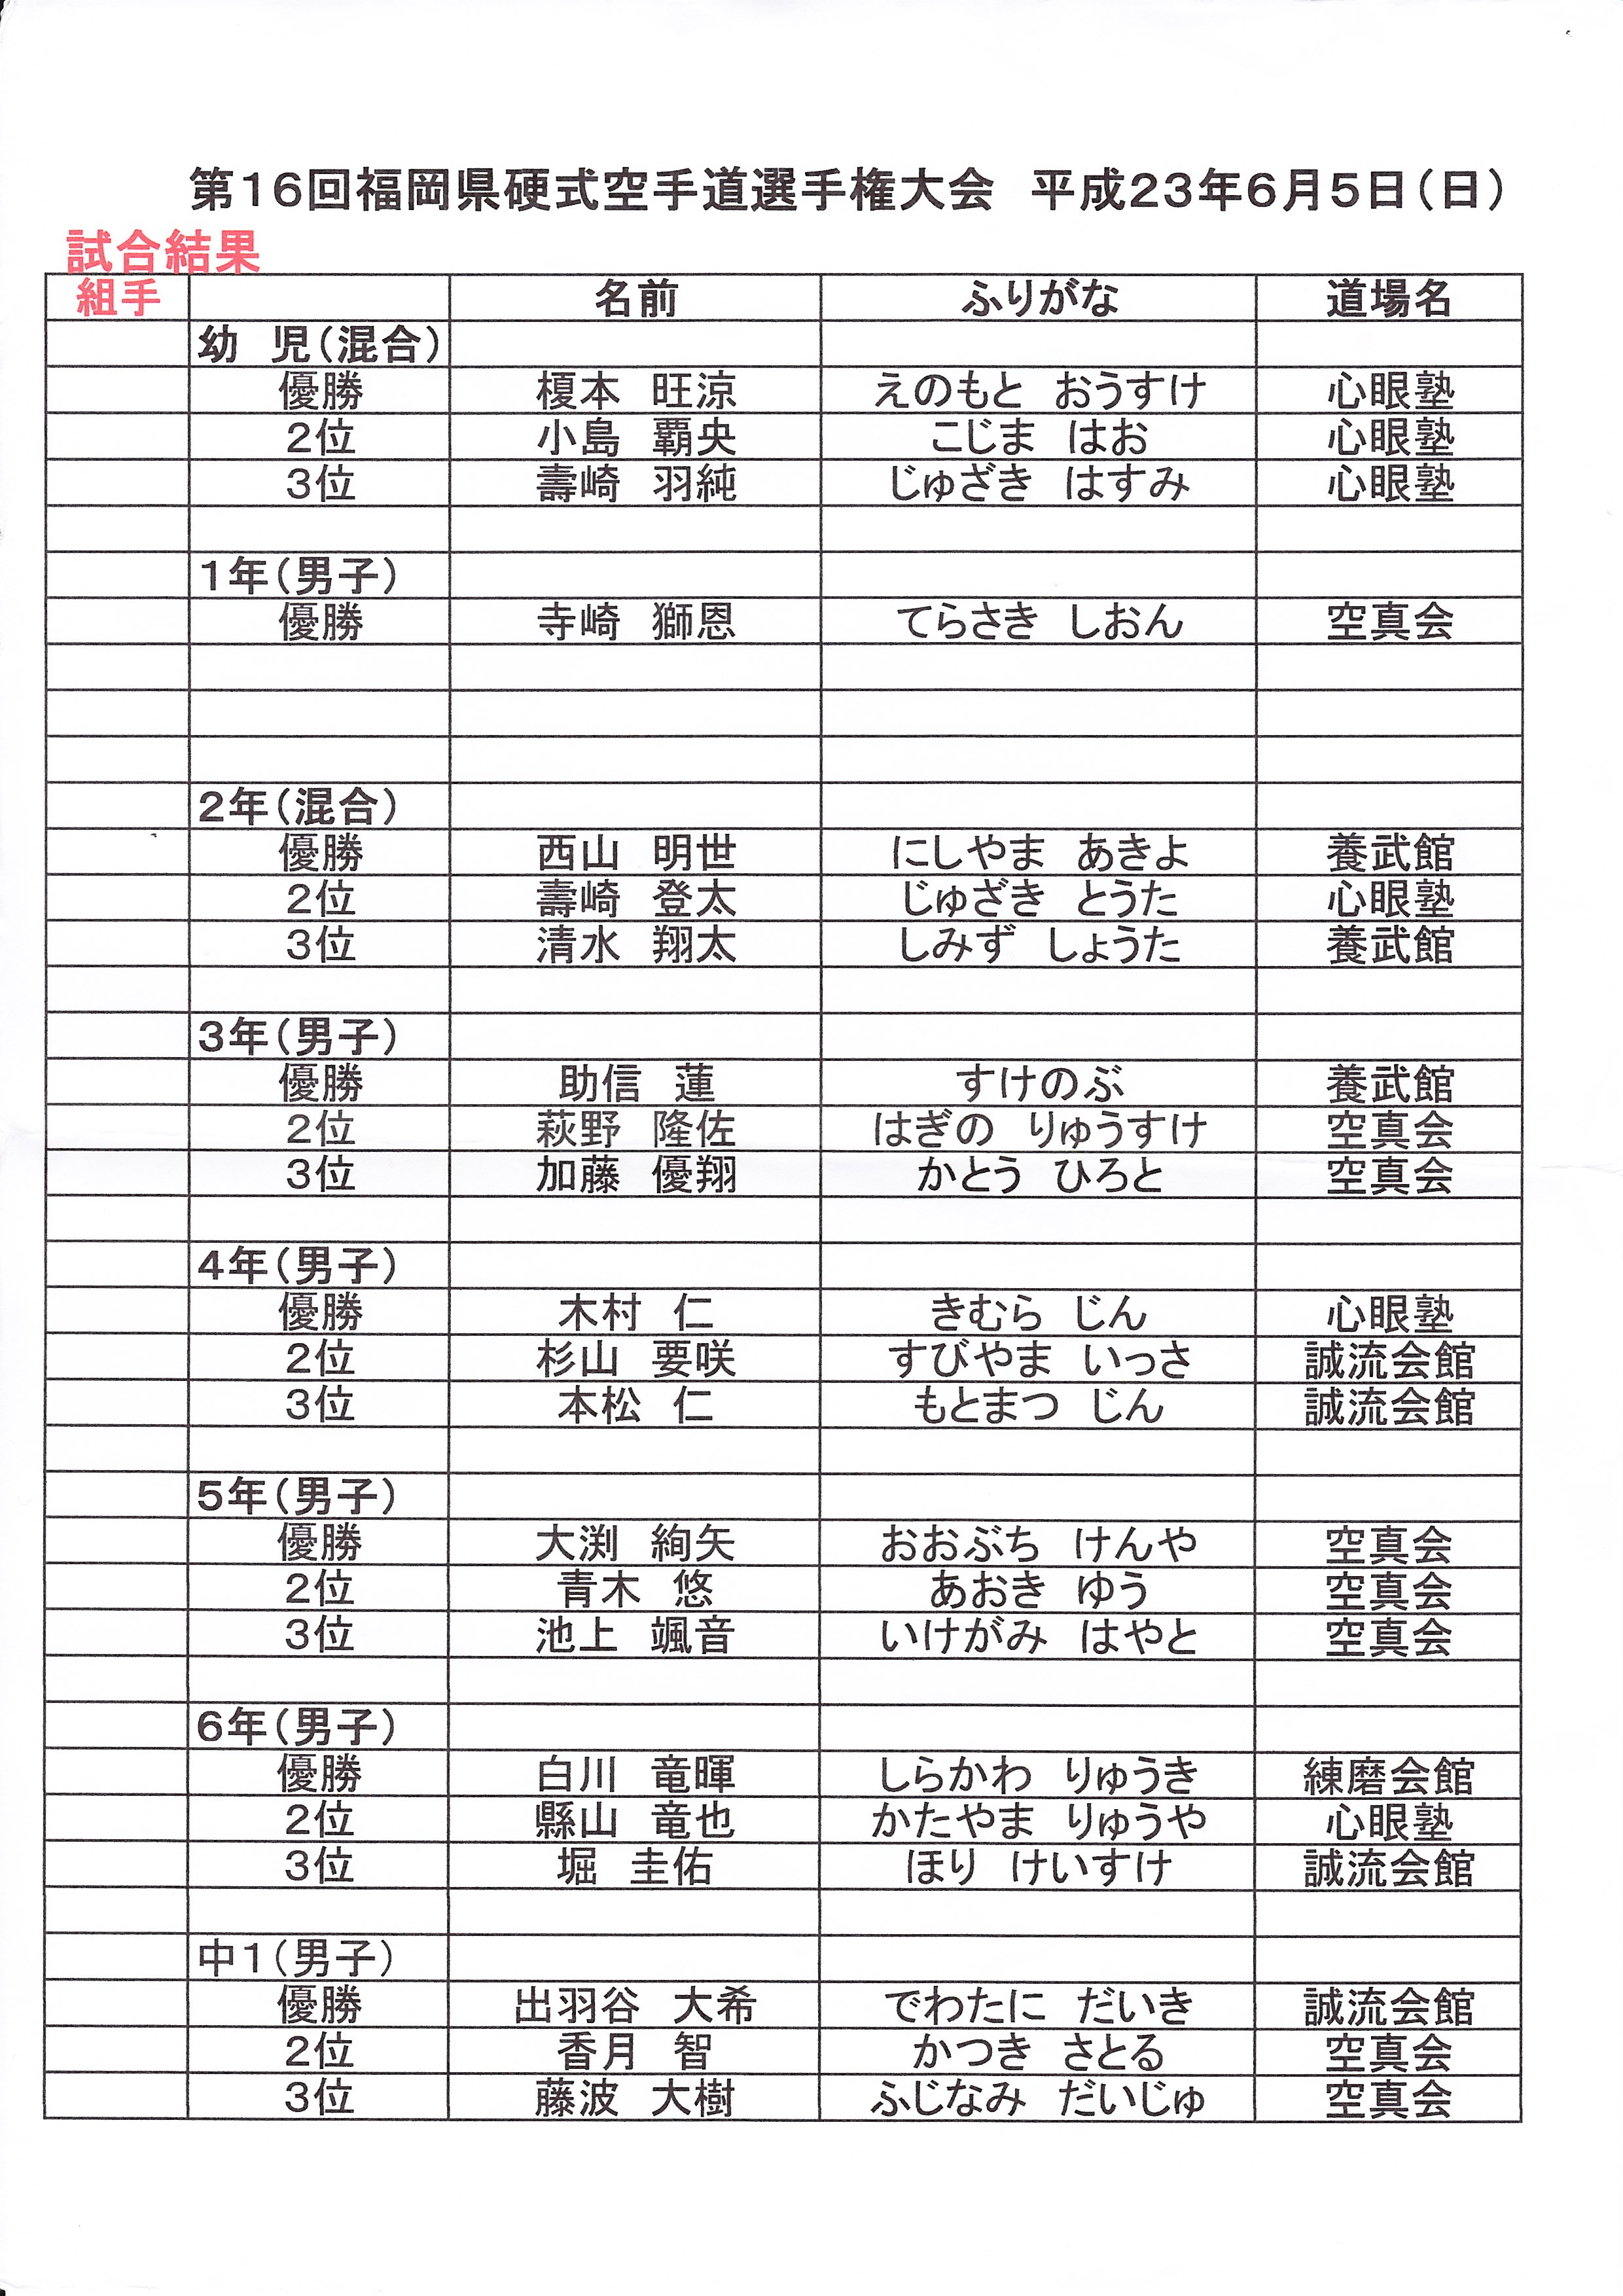 第16回福岡県硬式空手道選手権大会　平成23年6月5日(日)
試合結果
組手　名前　ふりがな　道場名
幼　児(混合)
優勝　榎本　旺涼　えのもと　おうすけ　心眼塾
2位　小島　覇央　こじま　はお　心眼塾
3位　壽崎　羽純　じゅざき　はすみ　心眼塾
1年(男子)
優勝　寺崎　獅恩　てらさき　しおん　空真会
2年(混合)
優勝　西山　明世　にしやま　あきよ　養武館
2位　壽崎　登太　じゅざき　とうた　心眼塾
3位　清水　翔太　しみず　しょうた　養武館
3年(男子)
優勝　助信　蓮　すけのぶ　養武館
2位　萩野　隆佐　はぎの　りゅうすけ　空真会
3位　加藤　優翔　かとう　ひろと　空真会
4年(男子)
優勝　木村　仁　きむら　じん　心眼塾
2位　杉山　要咲　すびやま　いっさ　誠流会館
3位　本松　仁　もとまつ　じん　誠流会館
5年(男子)
優勝　大渕　絢矢　おおぶち　けんや　空真会
2位　青木　悠　あおき　ゆう　空真会
3位　池上　颯音　いけがみ　はやと　空真会
6年(男子)
優勝　白川　竜暉　しらかわ　りゅうき　練磨会館
2位　縣山　竜也　かたやま　りゅうや　心眼塾
3位　堀　圭佑　ほり　けいすけ　誠流会館
中1(男子)
優勝　出羽谷　大希　でわたに　だいき　誠流会館
2位　香月　智　かつき　さとる　空真会
3位　藤波　大樹　ふじなみ　だいじゅ　空真会